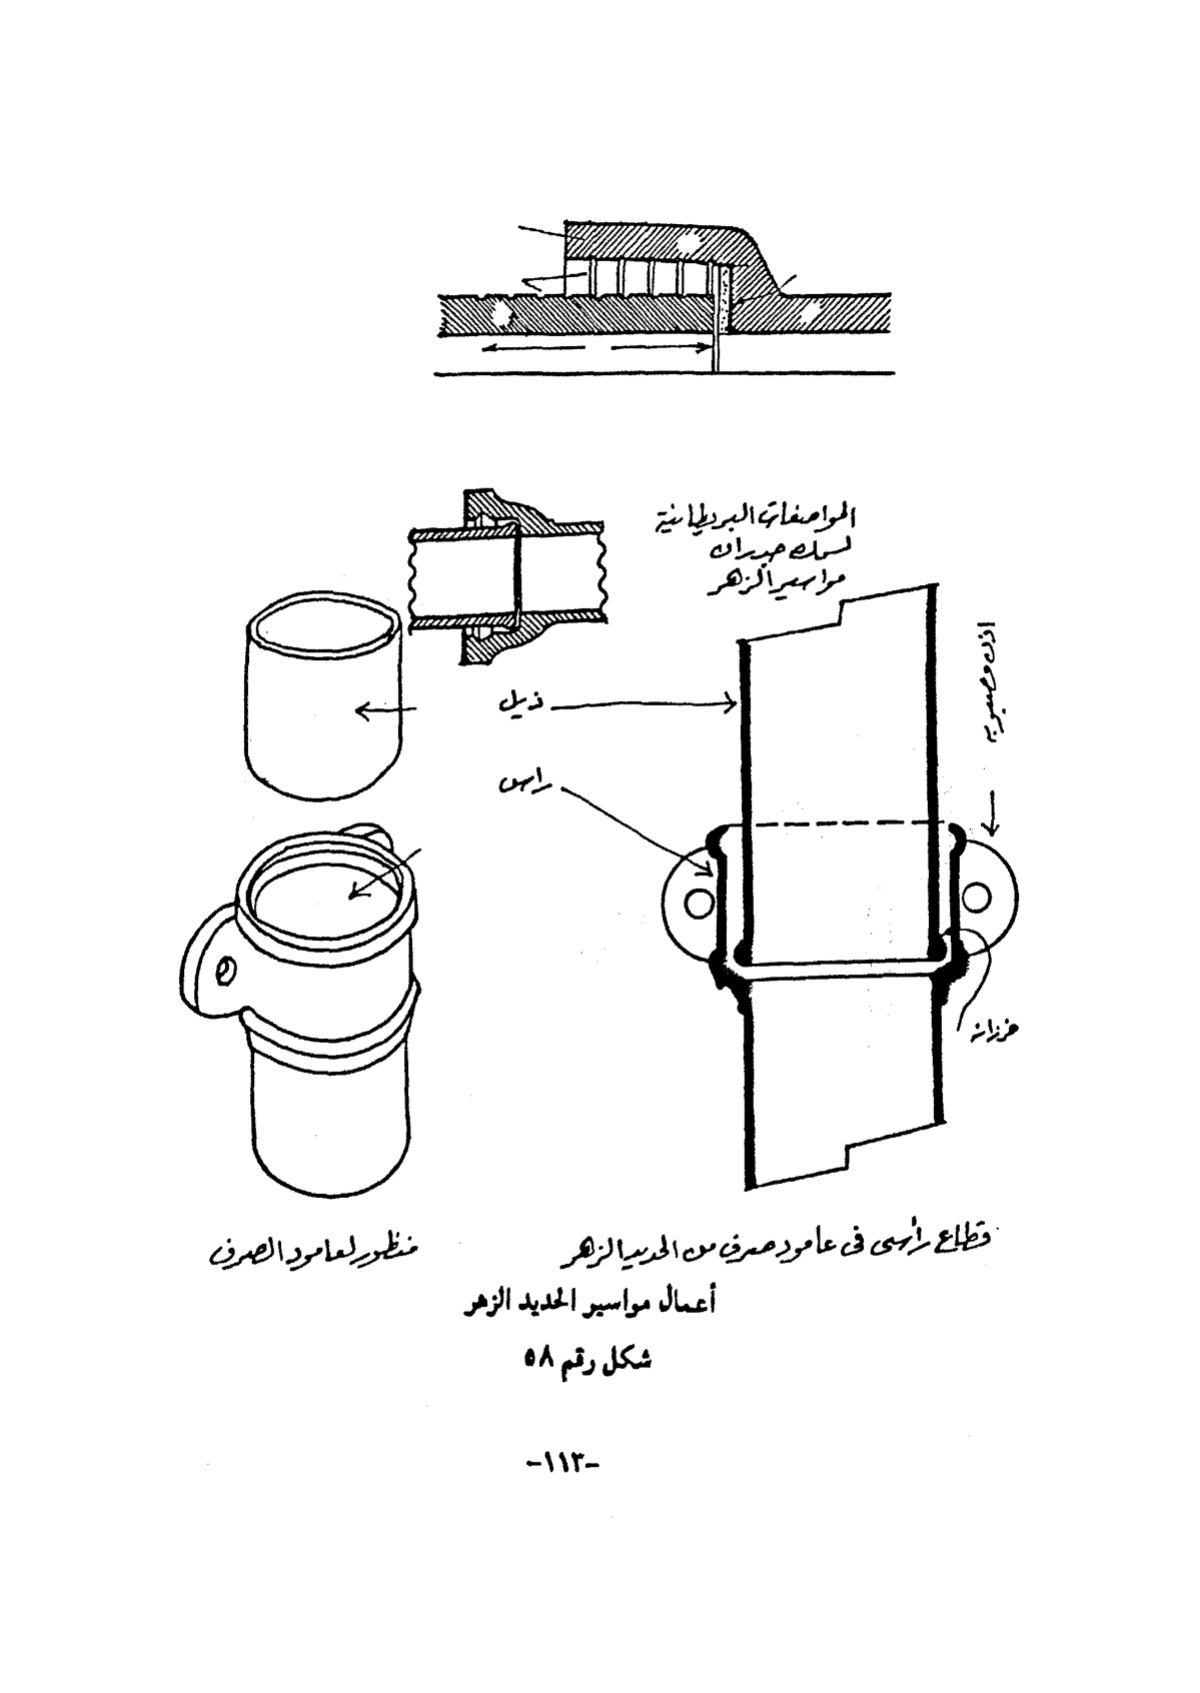 المواصفات البريطانية
لسمك جدران
مواسير الزهر
اذن مصبوبه
ذيل
راس
خرزانه
قطاع رأسى فى عامود صرف من الحديد الزهر
منظور لعامود الصرف
أعمال مواسير الحديد الزهر
شكل رقم ٥٨
-١١٣-